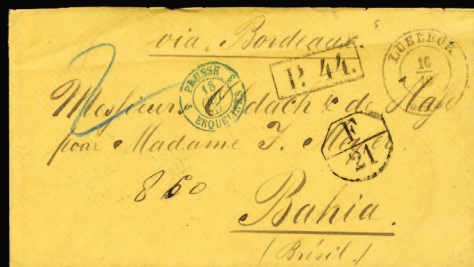 via Bordeaux.
LUEBECK
10
P. 44.
PRUSSE
3
ERQUELINES
3
18
Messieurs & de
pour Madame F.
F/21
2
860
Bahia.
(Brésil)